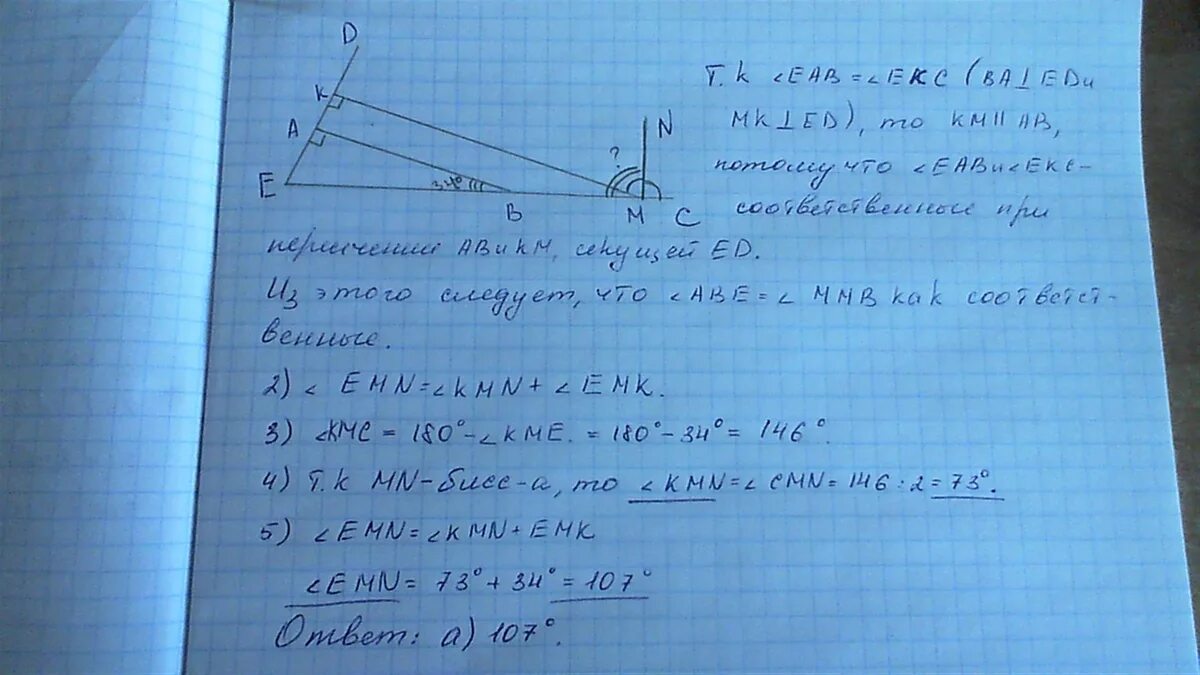 D
K
A
E
34°
B
?
N
M
C
Т.к ∠EAB = ∠EKC (BA⊥ED и
MK⊥ED), то KM∥AB,
потому что ∠EAB и ∠EKC-
соответственные при
пересечении AB и KM, секущей ED.
Из этого следует, что ∠ABE = ∠ MMB как соответст-
венные.
2) ∠ EMN = ∠KMN + ∠ EMK.
3) ∠KMC = 180° - ∠ KME. = 180° - 34° = 146°.
4) Т.к MN - бисс-а, то ∠ KMN = ∠ CMN = 146 : 2 = 73°.
5) ∠EMN = ∠KMN + EMK
∠EMN = 73° + 34° = 107°
Ответ: а) 107°.